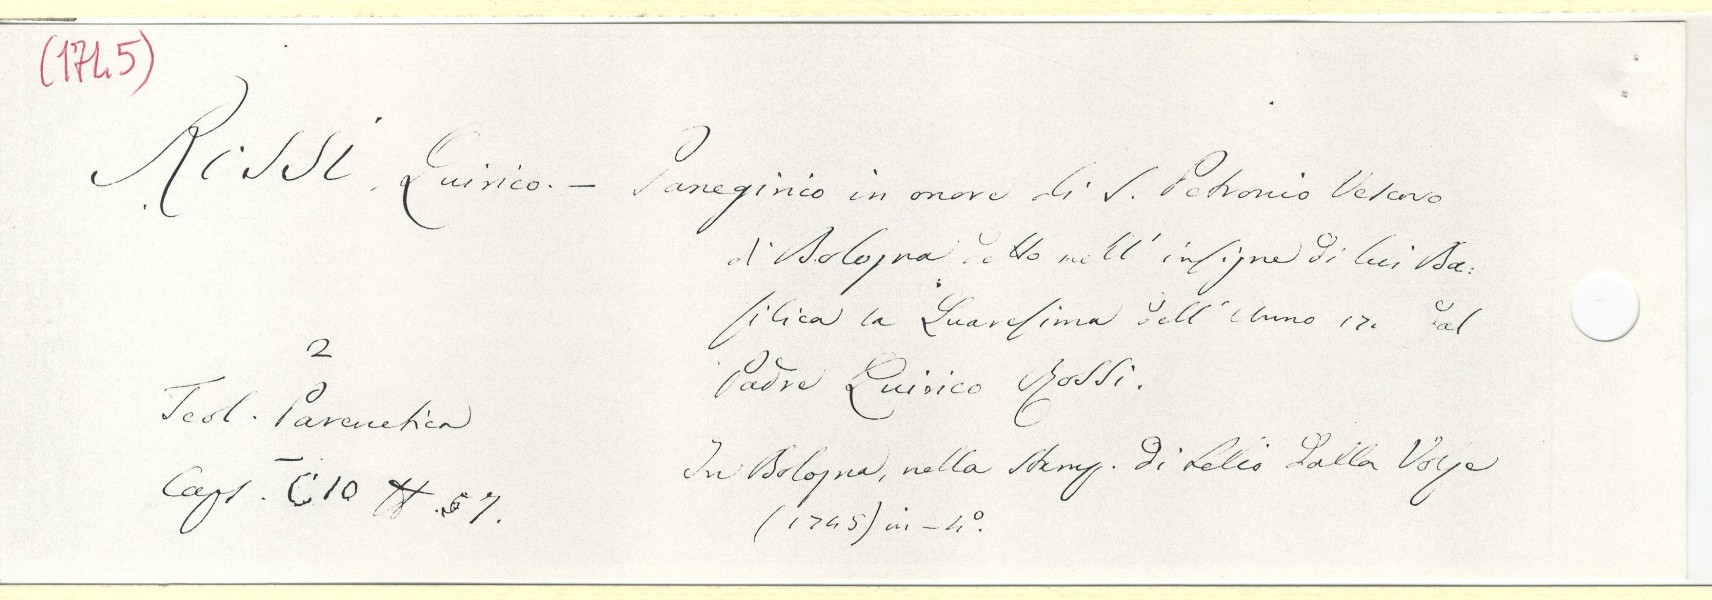 (1745)
Rossi, Quirico. — Panegirico in onore di S. Petronio Vescovo
di Bologna detto nell' insigne di lui Ba:
silica la Quaresima dell' Anno 17. dal
Padre Quirico Rossi.
2
Teol. Parenetica
In Bologna, nella Stamp. di Lelio Dalla Volpe
Caps. C10 57.
(1745) in-4º.